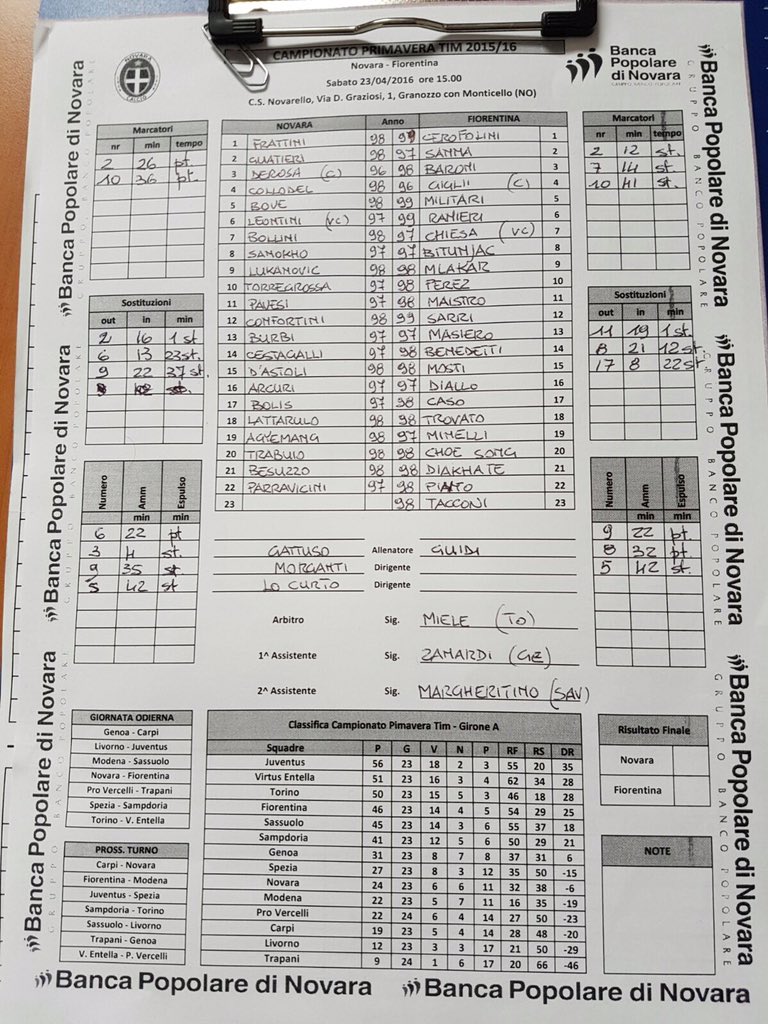 CAMPIONATO PRIMAVERA TIM 2015/16
Novara - Fiorentina
Sabato 23/04/2016 ore 15.00
C.S. Novarello, Via D. Graziosi, 1, Granozzo con Monticello (NO)
NOVARA CALCIO
Banca Popolare di Novara
GRUPPO BANCO POPOLARE
Marcatori
nr min tempo
2 26 pt.
10 36 pt.
Sostituzioni
out in min
2 16 1 st
6 13 23 st.
9 22 37 st.
Numero Amm Espulso
min min
6 22 pt
3 4 st.
9 35 st
5 42 st
NOVARA Anno FIORENTINA
1 FRATTINI 98 99 CEROFOLINI 1
2 GUATIERI 98 97 SANNA 2
3 DEROSA (C) 96 98 BARONI 3
4 COLLODEL 98 96 GIGLI (C) 4
5 BOVE 98 99 MILITARI 5
6 LEONTINI (VC) 97 99 RANIERI 6
7 BOLLINI 98 97 CHIESA (VC) 7
8 SAMOKHO 97 97 BITUNJAC 8
9 LUKANOVIC 98 98 MLAKAR 9
10 TORREGROSSA 97 98 PEREZ 10
11 PAVESI 97 98 MAISTRO 11
12 CONFORTINI 98 99 SARRI 12
13 BURBI 97 97 MASIERO 13
14 CESTAGALLI 97 98 BENEDETTI 14
15 D'ASTOLI 98 98 MOSTI 15
16 ARCURI 97 97 DIALLO 16
17 BOLIS 97 98 CASO 17
18 LATTARULO 98 98 TROVATO 18
19 AGYEMANG 98 97 MINELLI 19
20 TRABUIO 98 98 CHOE SONG 20
21 BESUZZO 98 98 DIAKHATE 21
22 PARRAVICINI 97 98 PINTO 22
23 98 TACCONI 23
GATTUSO Allenatore GUIDI
MORGANTI Dirigente
LO CURTO Dirigente
Arbitro Sig. MIELE (TO)
1^ Assistente Sig. ZANARDI (GE)
2^ Assistente Sig. MARGHERITINO (SAV)
Marcatori
nr min tempo
2 12 st.
7 14 st.
10 41 st.
Sostituzioni
out in min
11 19 1 st.
8 21 12 st
17 8 22 st
Numero Amm Espulso
min min
9 22 pt.
8 32 pt.
5 42 st.
GIORNATA ODIERNA
Genoa - Carpi
Livorno - Juventus
Modena - Sassuolo
Novara - Fiorentina
Pro Vercelli - Trapani
Spezia - Sampdoria
Torino - V. Entella
PROSS. TURNO
Carpi - Novara
Fiorentina - Modena
Juventus - Spezia
Sampdoria - Torino
Sassuolo - Livorno
Trapani - Genoa
V. Entella - P. Vercelli
Classifica Campionato Pimavera Tim - Girone A
Squadre P G V N P RF RS DR
Juventus 56 23 18 2 3 55 20 35
Virtus Entella 51 23 16 3 4 62 34 28
Torino 50 23 15 5 3 46 18 28
Fiorentina 46 23 14 4 5 54 29 25
Sassuolo 45 23 14 3 6 55 37 18
Sampdoria 41 23 12 5 6 50 29 21
Genoa 31 23 8 7 8 37 31 6
Spezia 27 23 8 3 12 35 50 -15
Novara 24 23 6 6 11 32 38 -6
Modena 22 23 5 7 11 16 35 -19
Pro Vercelli 22 24 6 4 14 27 50 -23
Carpi 19 23 5 4 14 28 48 -20
Livorno 12 23 3 3 17 21 50 -29
Trapani 9 24 1 6 17 20 66 -46
Risultato Finale
Novara
Fiorentina
NOTE
Banca Popolare di Novara
Banca Popolare di Novara
Banca Popolare di Novara
Banca Popolare di Novara
Banca Popolare di Novara
Banca Popolare di Novara
Banca Popolare di Novara
Banca Popolare di Novara